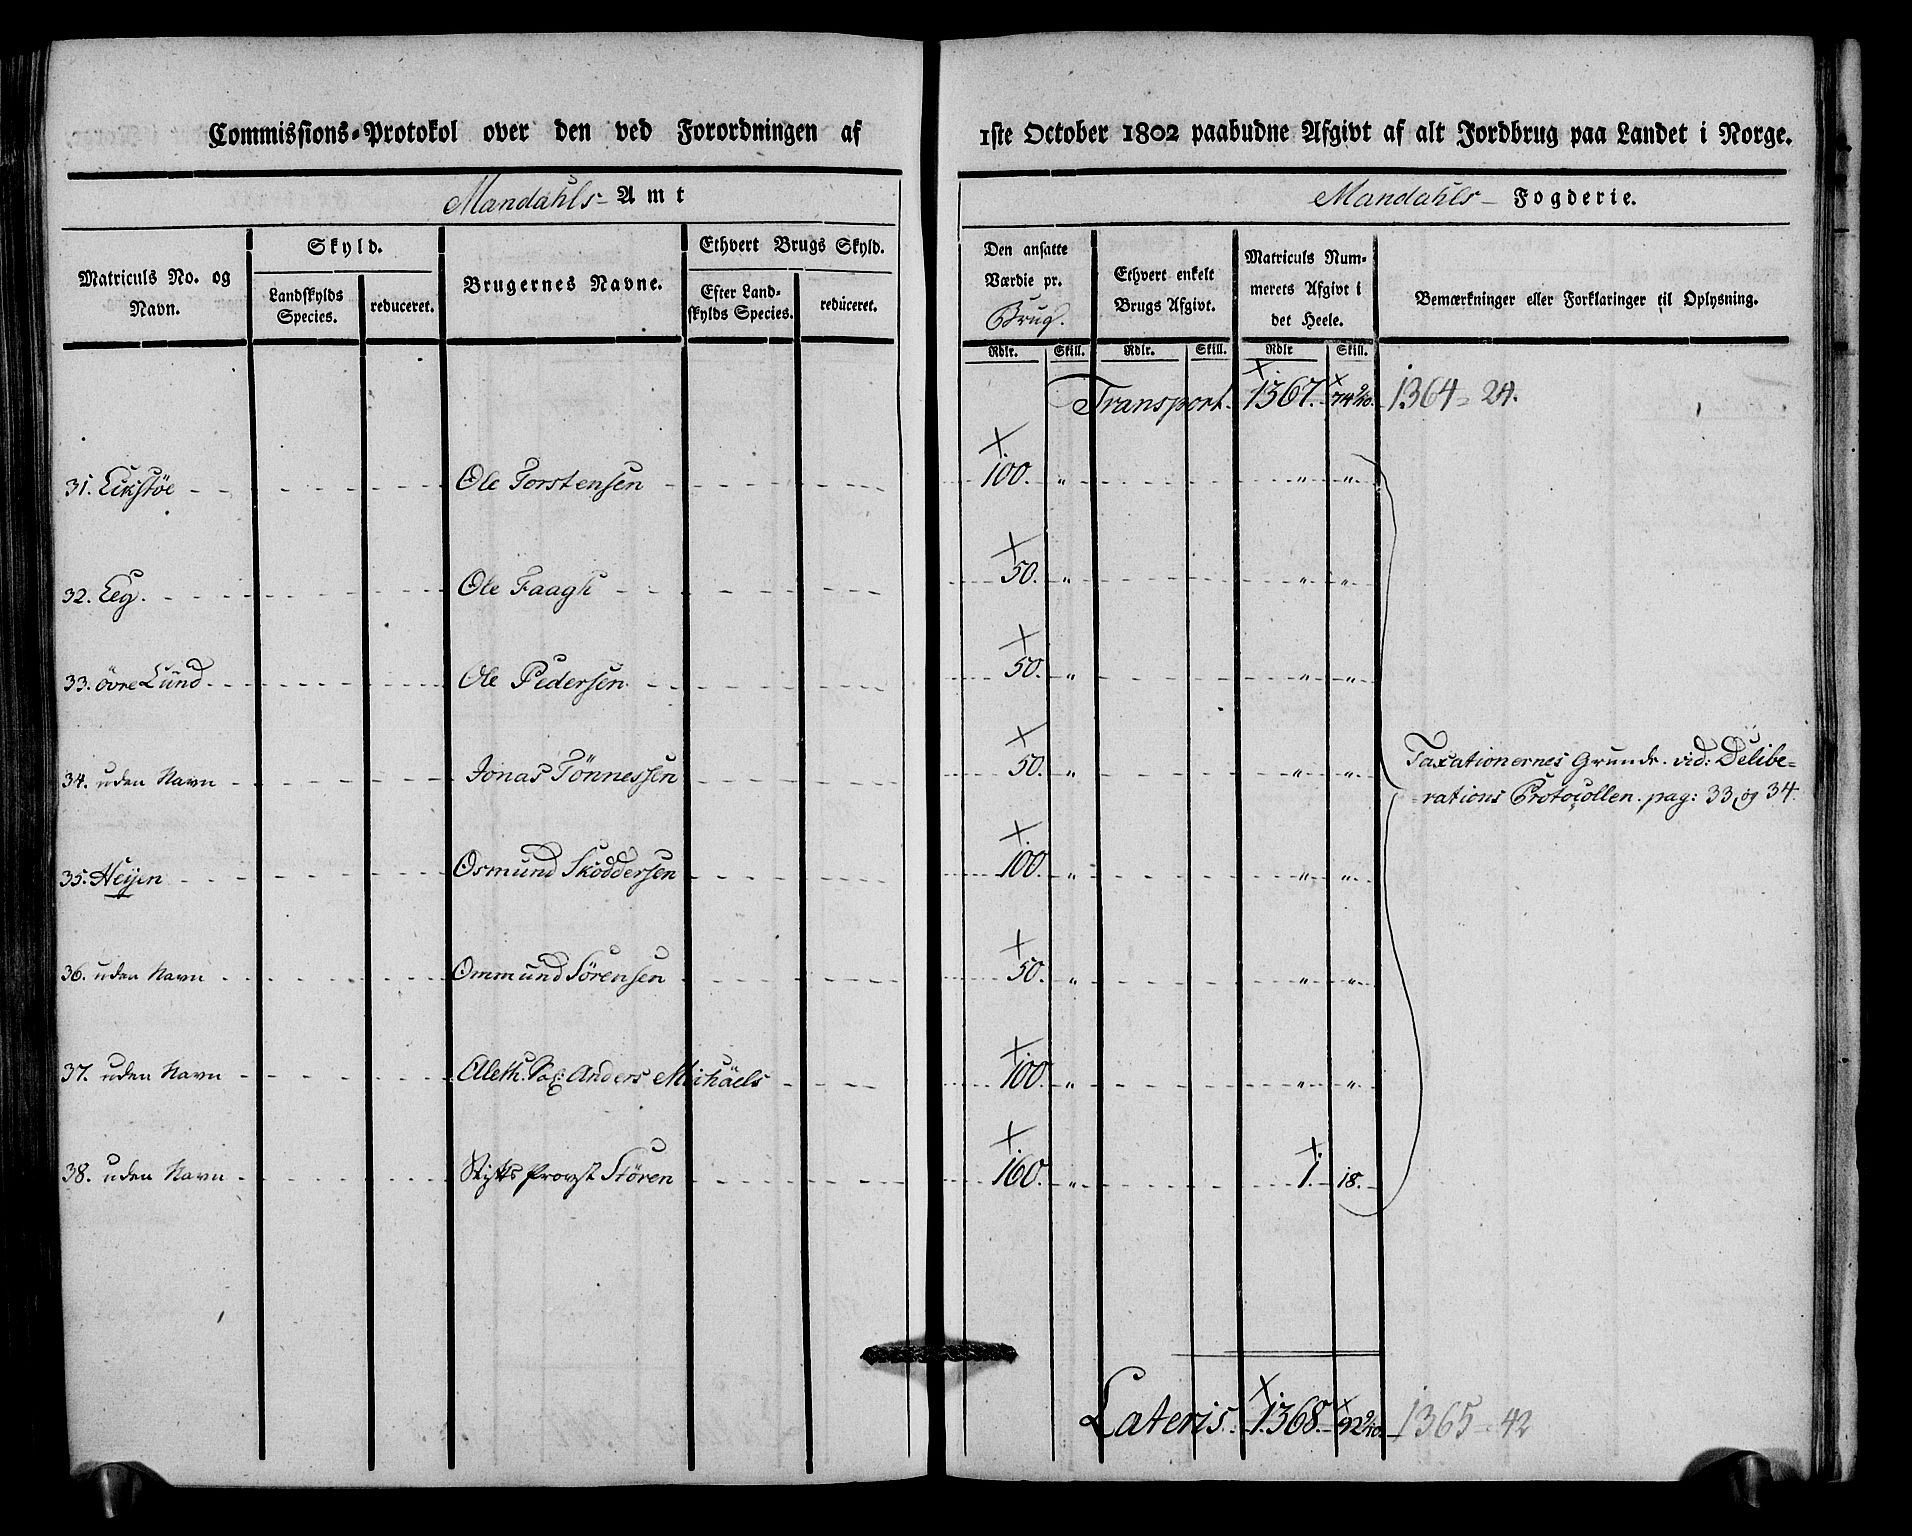 Commissions-Protokol over den ved Forordningen af 1ste October 1802 paabudne Afgivt af alt Jordbrug paa Landet i Norge.
Mandahls Amt
Mandahls Fogderie.
Matriculs No. og Navn.
Skyld.
Landskylds Species.
reduceret.
Brugernes Navne.
Ethvert Brugs Skyld.
Efter Landskylds Species.
reduceret.
Den ansatte Værdie pr. Brug.
Ethvert enkelt Brugs Afgivt.
Matriculs Nummerets Afgivt i det Heele.
Bemærkninger eller Forklaringer til Oplysning.
Rdlr. Skill. Rdlr. Skill. Rdlr Skill.
Transport. 1367. 1364 = 24.
31. Eckstøe Ole Torstensen 100. " " "
32. Eeg. Ole Faagh 50. " " "
33. övre Lund Ole Pedersen 50. " " "
34. uden Navn Jonas Tönnessen 50. " " "
Taxationernes Grunde vid: Delibe-
rations Protocollen. pag: 33, og 34.
35. Heijen Osmund Skoddersen 100. " " "
36. uden Navn Ommund Sörensen 50. " " "
37. uden Navn Anders Michäels 100. " " "
38. uden Navn Stifts Provst Stören 160. " 1. 18.
Lateris. 1368. 1365 = 42